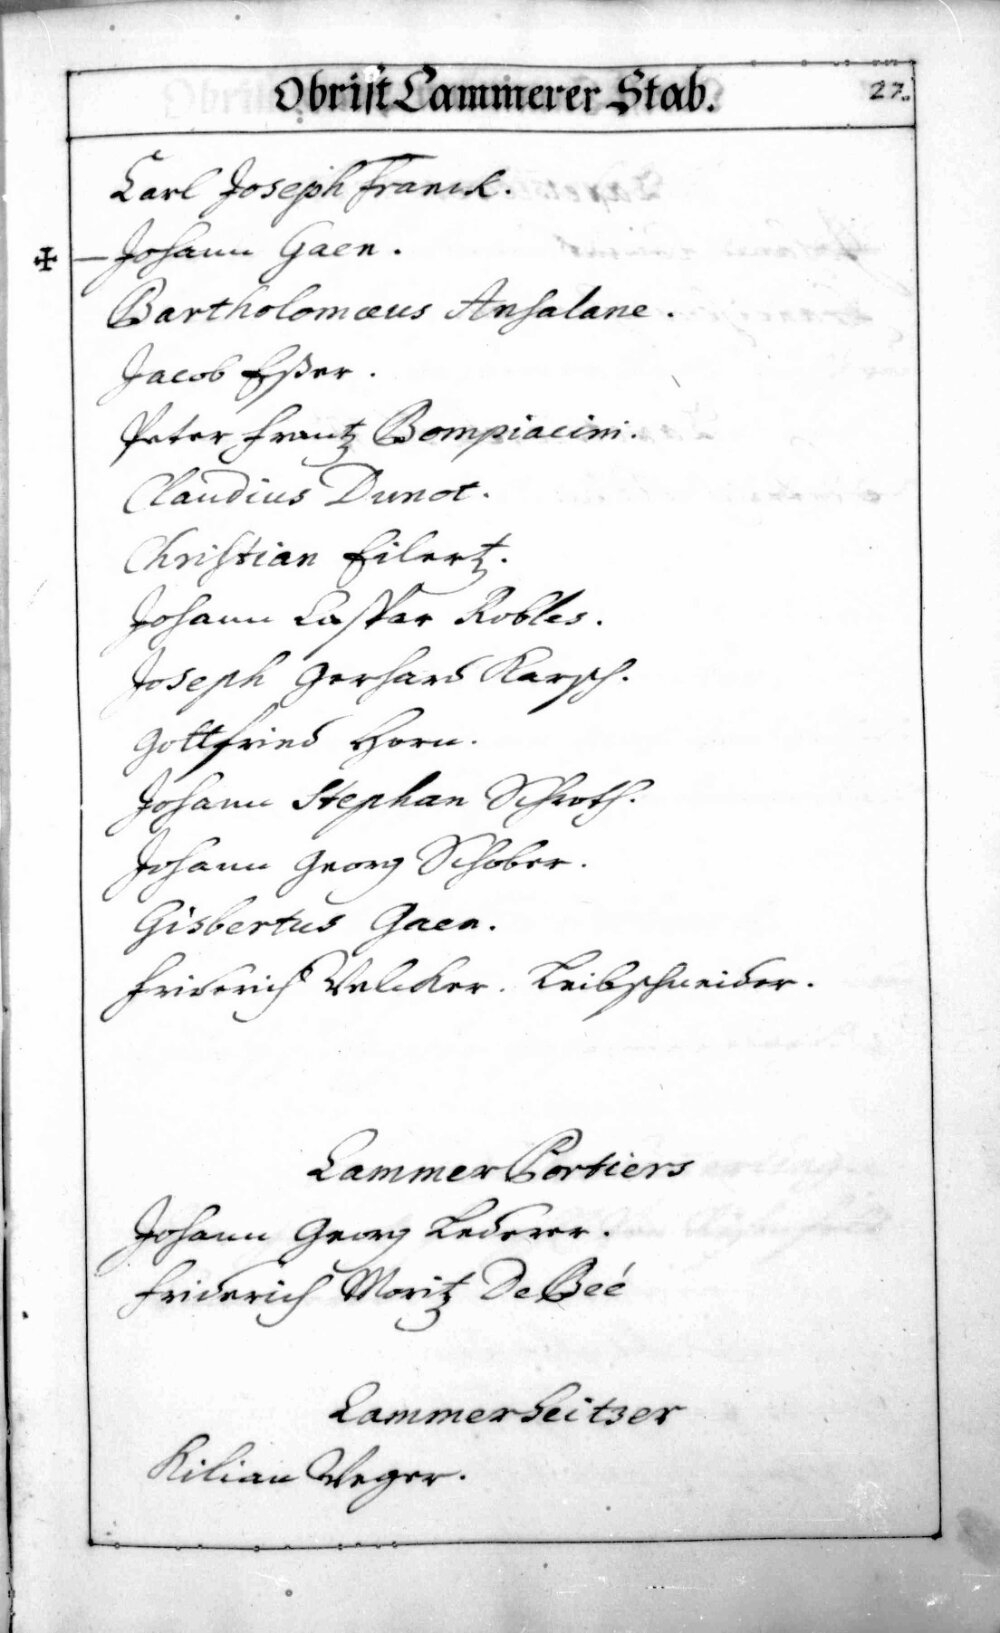 Obrist Cammerer Stab.
27.
Carl Joseph Franck.
✠ — Johann Gaen.
Bartholomæus Ansalane.
Jacob Eßer.
Peter Frantz Bompiacini.
Claudius Dunot.
Christian Eilertz.
Johann Caspar Robles.
Joseph Gerhard Karsch.
Gottfried Horn.
Johann Stephan Schroth.
Johann Georg Schober.
Gisbertus Gaen.
Friderich Velcker. Leibschneider.
Cammer Portiers
Johann Georg Lederer.
Friderich Moritz De Beé
Cammerheitzer
Kilian Weger.